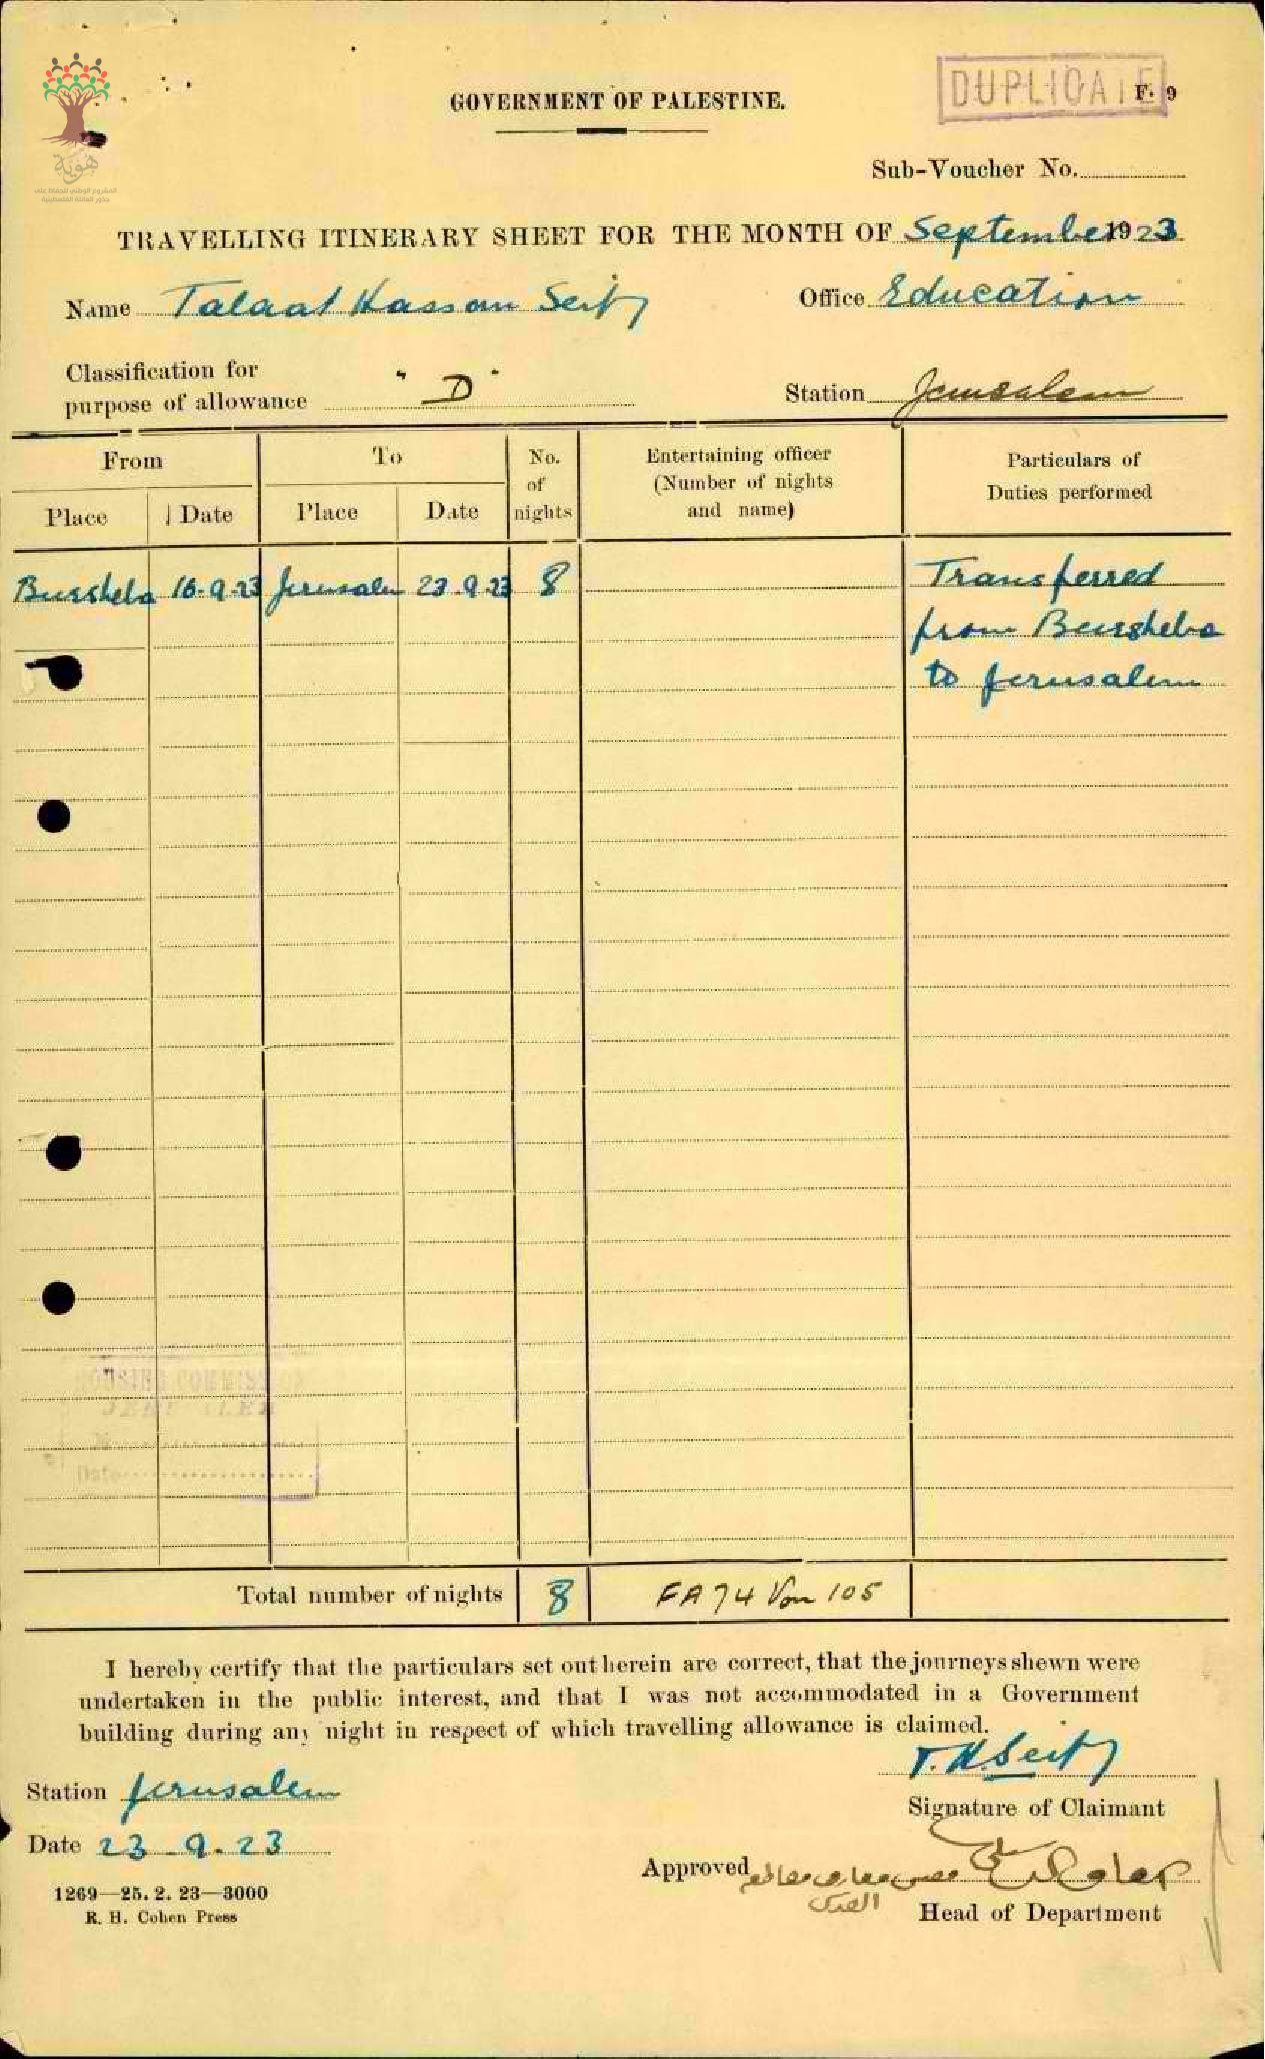 هوية
المشروع الوطني للحفاظ على
جذور العائلة الفلسطينية
DUPLICATE
F. 9
GOVERNMENT OF PALESTINE.
Sub-Voucher No.
TRAVELLING ITINERARY SHEET FOR THE MONTH OF September 1923
Name Talaat Hassan Seify Office Education
Classification for
purpose of allowance "D" Station Jerusalem
From To No. of nights Entertaining officer (Number of nights and name) Particulars of Duties performed
Place Date Place Date
Beersheba 16-9-23 Jerusalem 23.9.23 8 Transferred
from Beersheba
to Jerusalem
HOUSING COMMISSION
Date
Total number of nights 8 FA 74 105
I hereby certify that the particulars set out herein are correct, that the journeys shewn were
undertaken in the public interest, and that I was not accommodated in a Government
building during any night in respect of which travelling allowance is claimed.
T. H. Seify
Station Jerusalem
Signature of Claimant
Date 23.9.23
Approved
القدس
Head of Department
1269—25. 2. 23—3000
R. H. Cohen Press